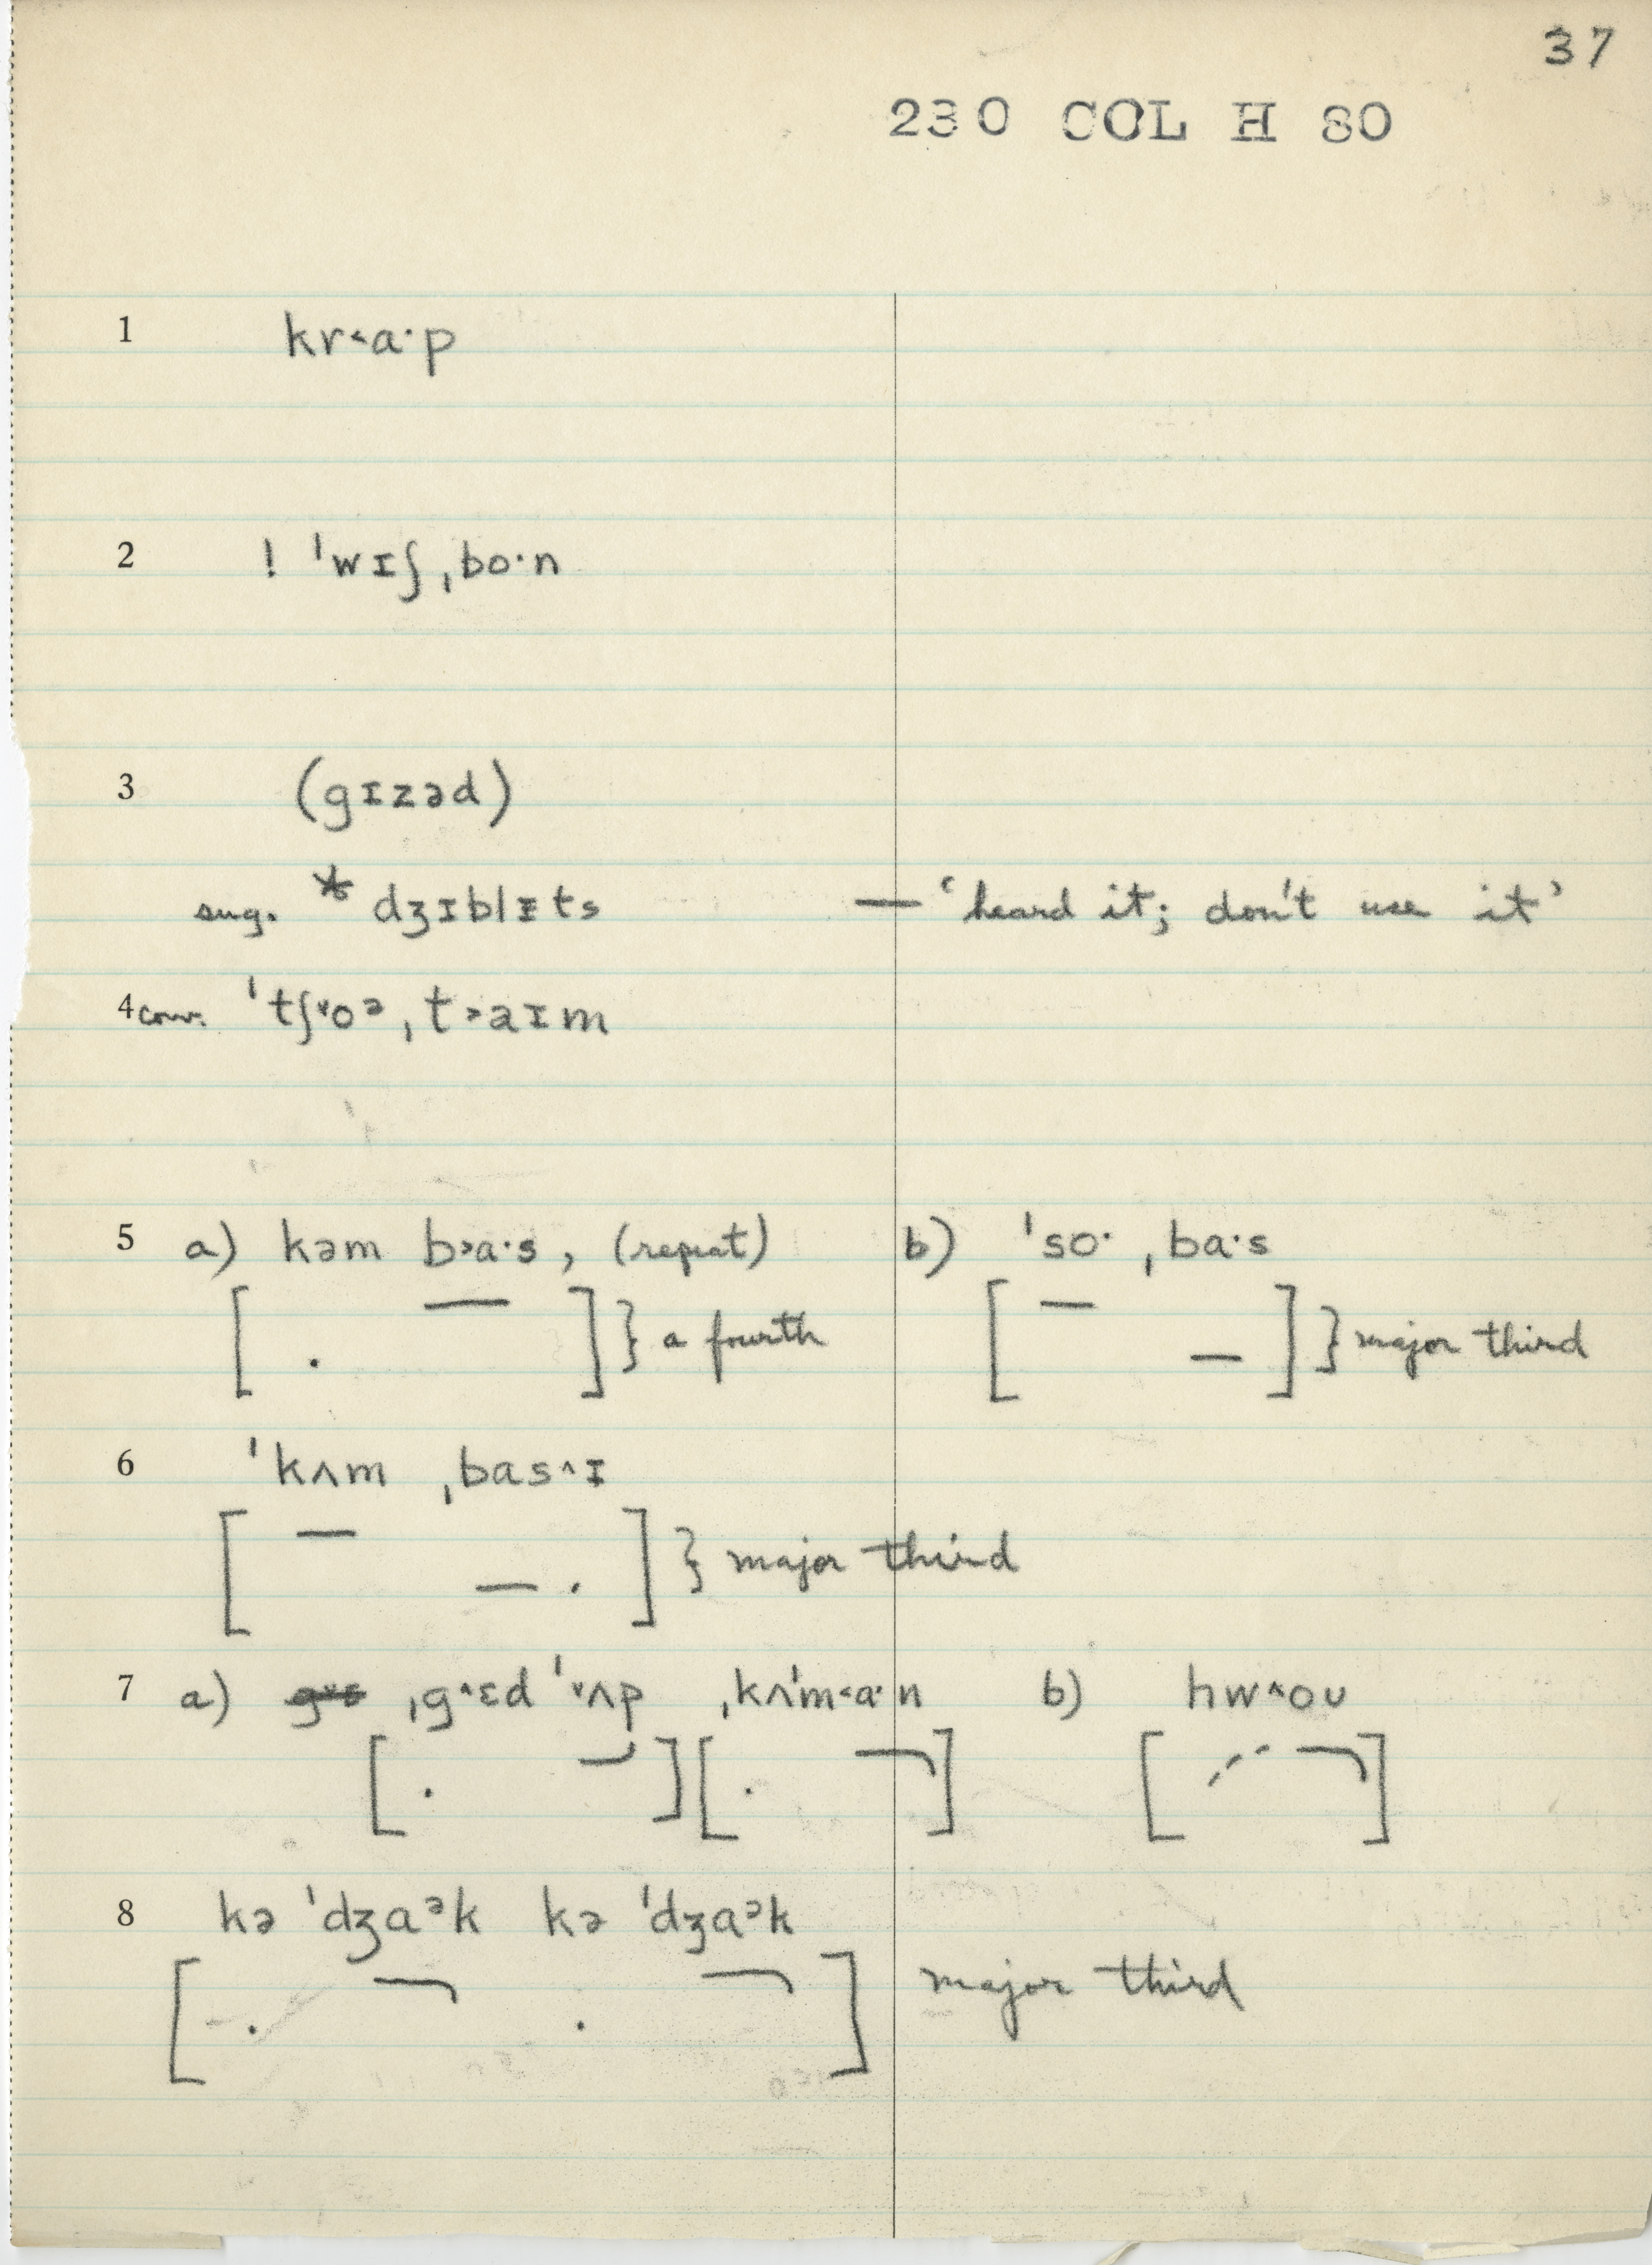 37
230 COL H 80
1 kr˂a·p
2 ! ˈwɪʃˌbo·n
3 (gɪzəd)
sug. * dʒɪblᵻts — ‘heard it; don't use it’
4 conv. ˈtʃ˅oᵊˌt˃aɪm
5 a) kəm b˃a·s, (repeat) b) ˈso· ˌba·s
[ . — ] } a fourth [ — — ] } major third
6 ˈkʌm ˌbas˄ɪ
[ — — . ] } major third
7 a) ˌg˄ɛd ˈ˅ʌp ˌkʌˈm˂a·n b) hw˄oʊ
8 kə ˈdʒaᵊk kə ˈdʒaᵊk
[ . . ] major third